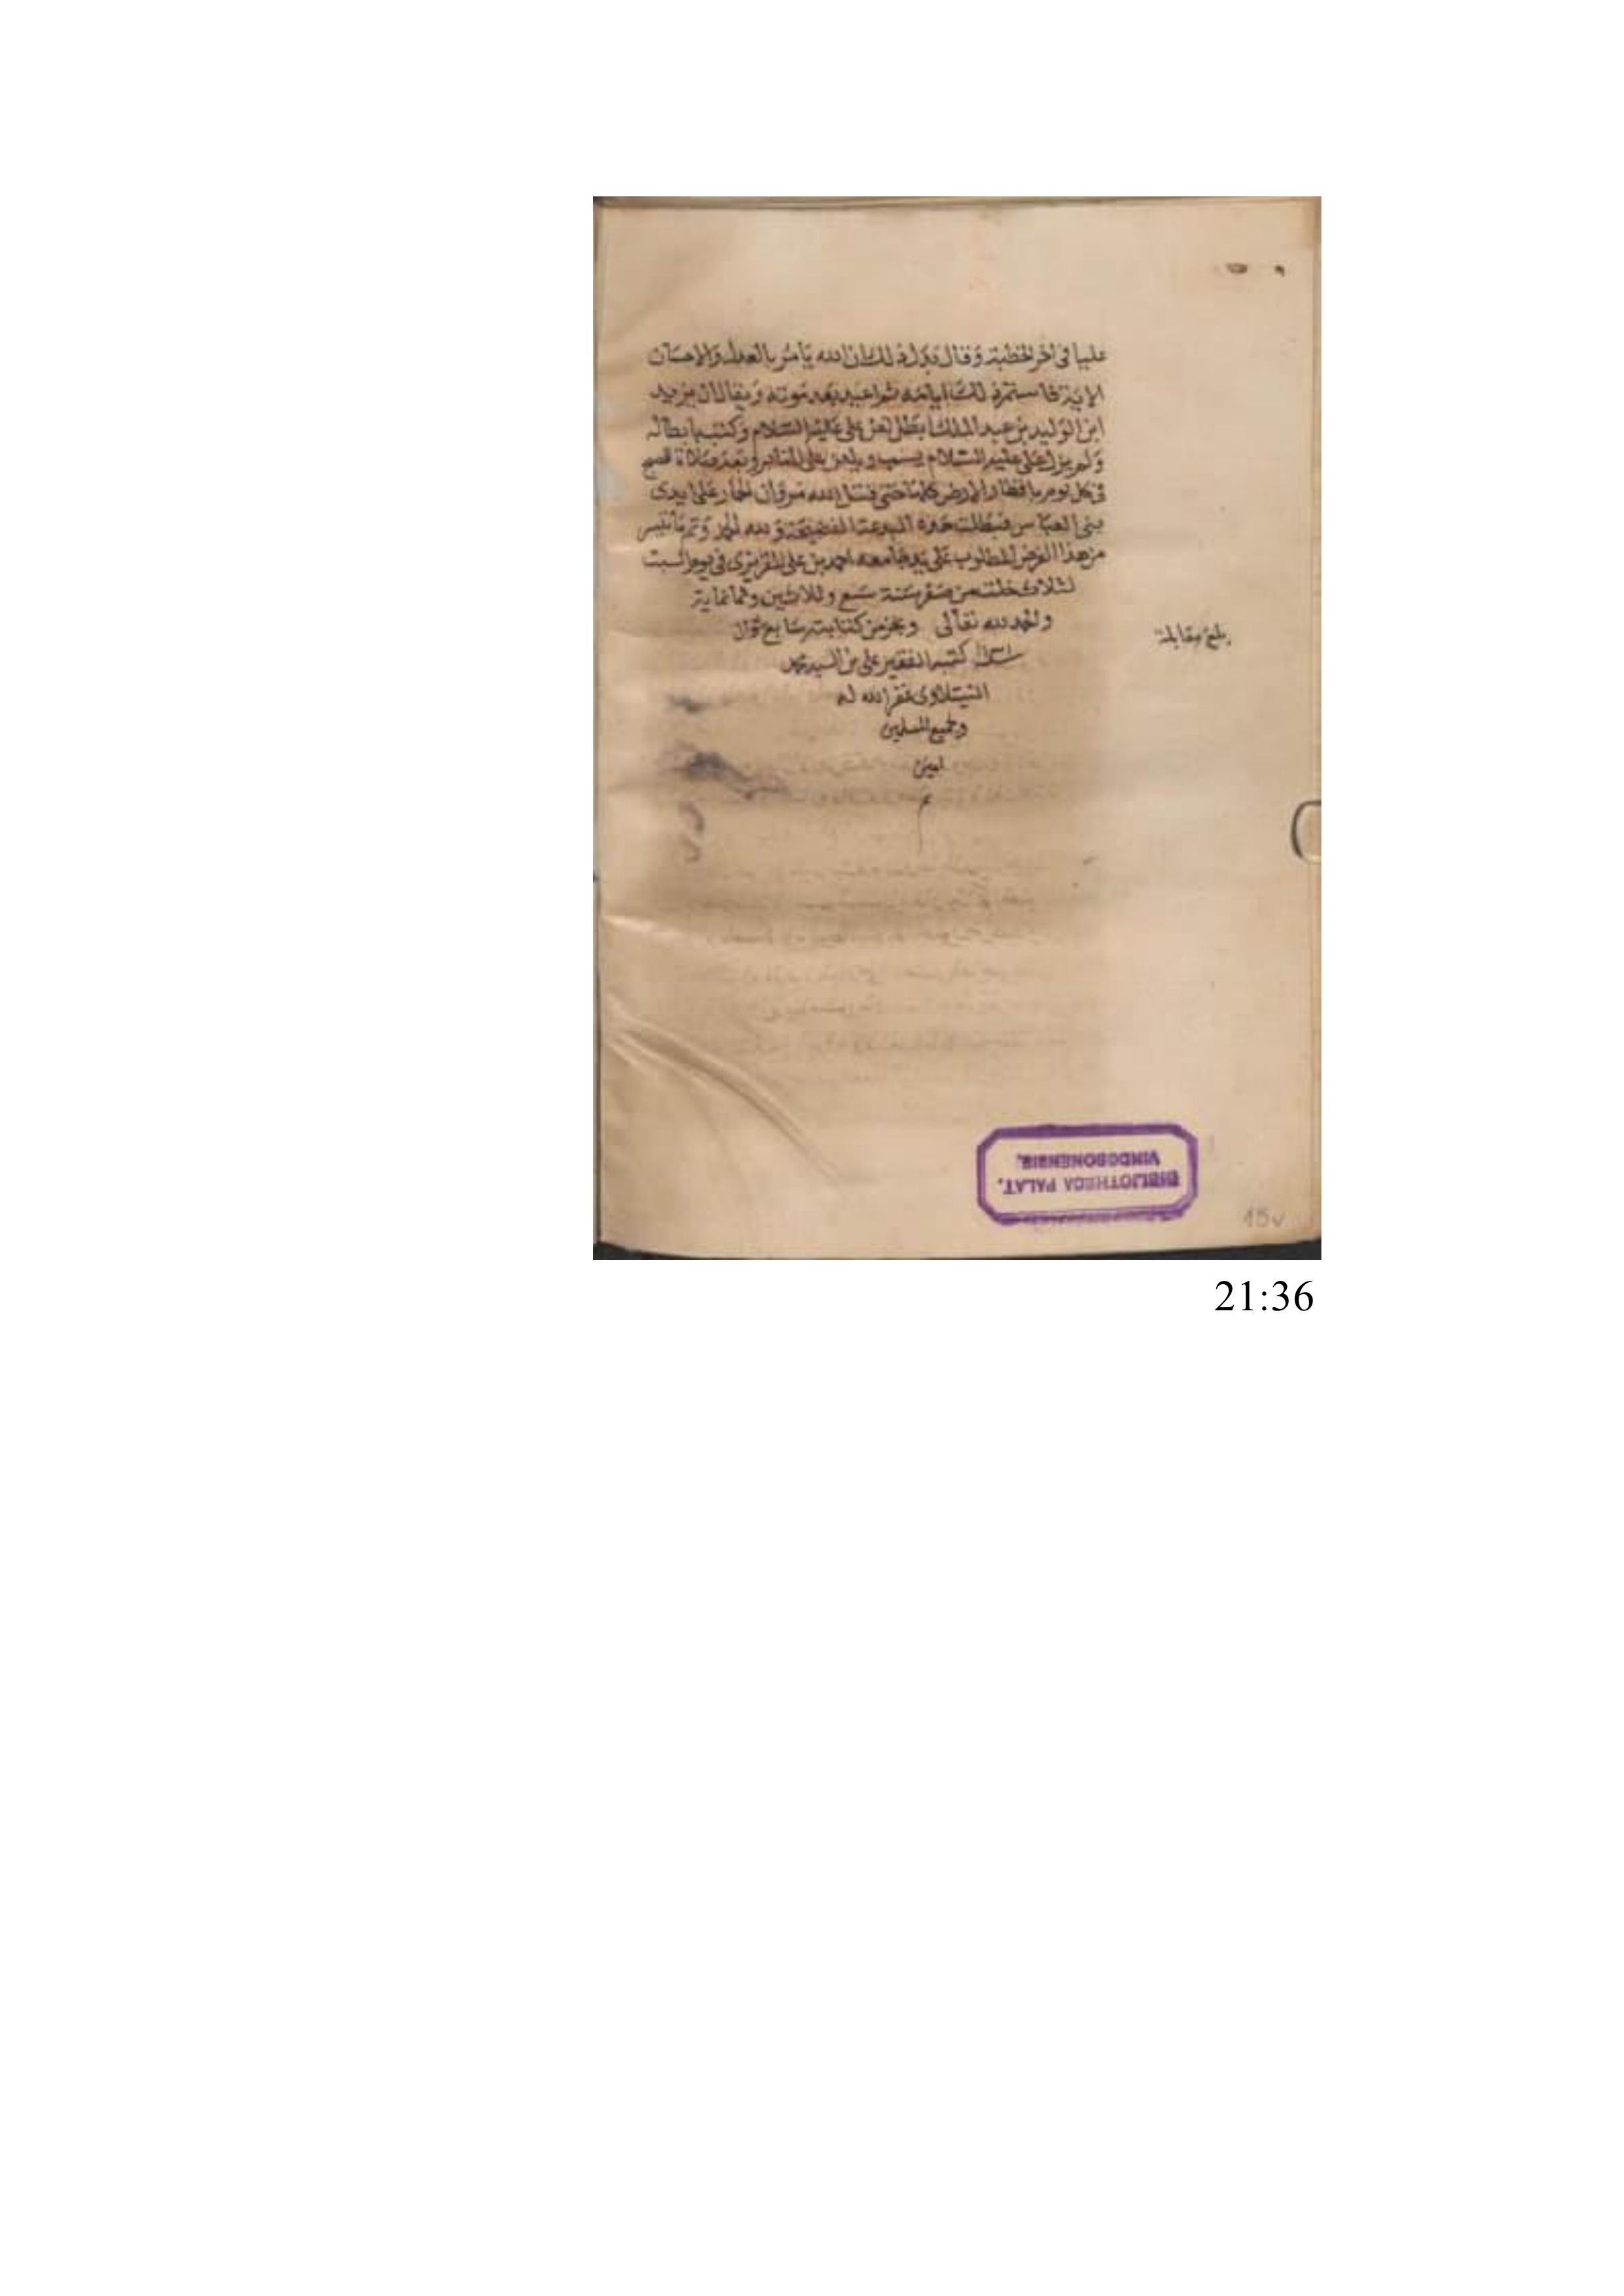 عليا في اخر الخطبة وقال بدل ذلك ان الله يامر بالعدل والاحسان
الاية فاستمر ذلك ايامه ثم اعيد بعد موته ويقال ان يزيد
ابن الوليد بن عبد الملك ابطل لعن علي عليه السلام وكتب بابطاله
ولم يزل علي عليه السلام يسب ويلعن على المنابر وبعد صلاة الصبح
في كل يوم باقطار الارض كلها حتى قتل الله مروان الحمار على ايدي
بني العباس فبطلت هذه البدعة القبيحة ولله الحمد وتم ما تيسر
من هذا الغرض المطلوب على يد جامعه احمد بن علي المقريزي في يوم السبت
لثلاث خلت من صفر سنة سبع وثلاثين وثمانماية
والحمد لله تعالى ونجز من كتابته سابع شوال
كتبه الفقير علي بن السيد محمد
غفر الله له
ولجميع المسلمين
امين
م
بلغ مقابلة
BIBLIOTHECA PALAT.
VINDOBONENSIS.
15v
21:36